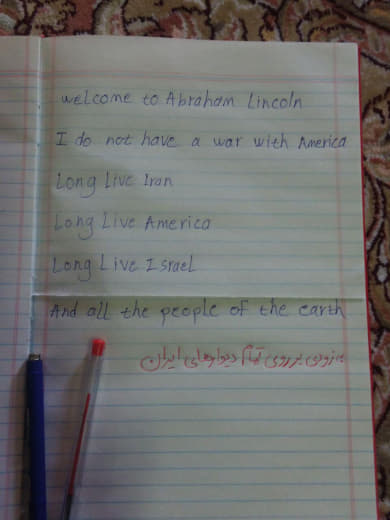 welcome to Abraham Lincoln
I do not have a war with America
Long Live Iran
Long Live America
Long Live Israel
And all the people of the earth
بزودی بر روی تمام دیوارهای ایران